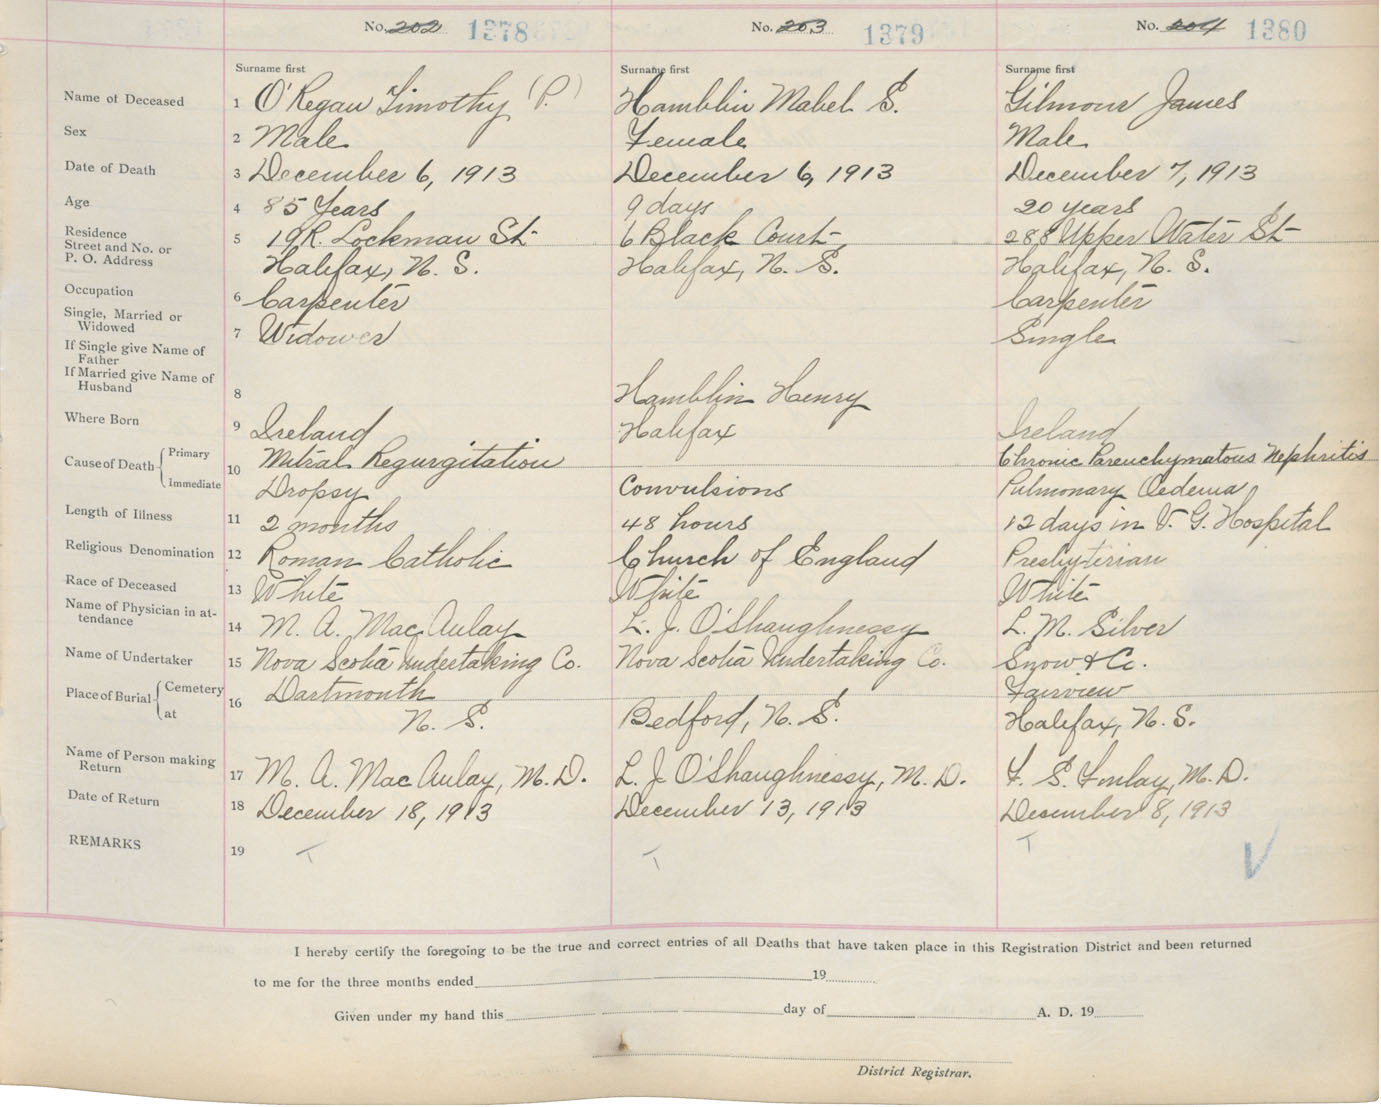 No. 202 1378 No. 203 1379 No. 204 1380
Surname first Surname first Surname first
Name of Deceased 1 O'Regan Timothy (P.) Hamblin Mabel S. Gilmour James
Sex 2 Male Female Male
Date of Death 3 December 6, 1913 December 6, 1913 December 7, 1913
Age 4 85 Years 9 days 20 years
Residence Street and No. or P. O. Address 5 19R. Lockman St 6 Black Court 288 Upper Water St
Halifax, N. S. Halifax, N. S. Halifax, N. S.
Occupation 6 Carpenter Carpenter
Single, Married or Widowed 7 Widower Single
If Single give Name of Father
If Married give Name of Husband 8 Hamblin Henry
Where Born 9 Ireland Halifax Ireland
Cause of Death Primary 10 Mitral Regurgitation Chronic Parenchymatous Nephritis
Immediate Dropsy Convulsions Pulmonary Oedema
Length of Illness 11 2 months 48 hours 12 days in V. G. Hospital
Religious Denomination 12 Roman Catholic Church of England Presbyterian
Race of Deceased 13 White White White
Name of Physician in attendance 14 M. A. MacAulay L. J. O'Shaughnessy L. M. Silver
Name of Undertaker 15 Nova Scotia Undertaking Co. Nova Scotia Undertaking Co. Snow & Co.
Place of Burial Cemetery 16 Dartmouth Fairview
at N. S. Bedford, N. S. Halifax, N. S.
Name of Person making Return 17 M. A. MacAulay, M. D. L. J. O'Shaughnessy, M. D. F. S. Finlay, M. D.
Date of Return 18 December 18, 1913 December 13, 1913 December 8, 1913
REMARKS 19 T T T
I hereby certify the foregoing to be the true and correct entries of all Deaths that have taken place in this Registration District and been returned
to me for the three months ended 19
Given under my hand this day of A. D. 19
District Registrar.